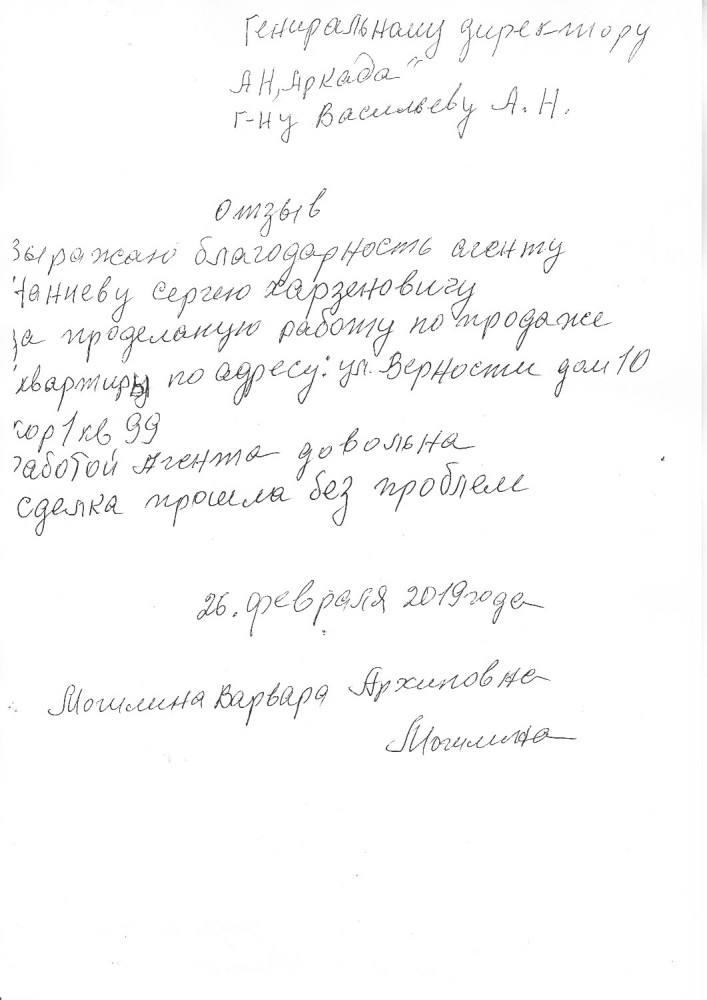 Гениральному директору
АН „Аркада"
г-ну Васильеву А. Н.
отзыв
Выражаю благодарность агенту
Наниеву Сергею Харзеновичу
за проделаную работу по продаже
квартиры по адресу: ул. Верности дом 10
кор 1 кв 99
работой Агента довольна
сделка прошла без проблем
26. февраля 2019 года
Могилина Варвара Архиповна
Могилина